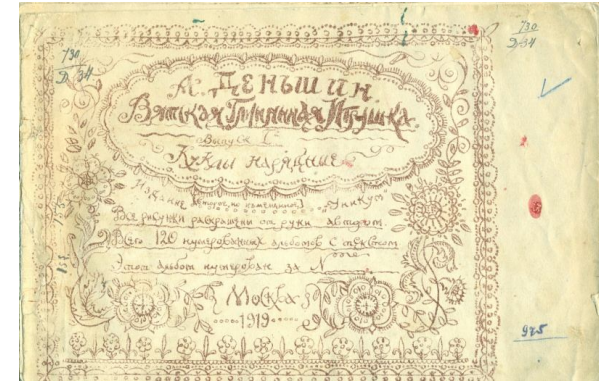 730
Д-34
730
Д-34
А. Деньшин.
Вятская Глиняная Игрушка.
Выпуск I.
Куклы нарядные
Издание Уникум
Все рисунки раскрашены от руки автором.
Всего 120 нумерованных альбомов с текстом
Этот альбом нумерован за №
Москва
1919
925